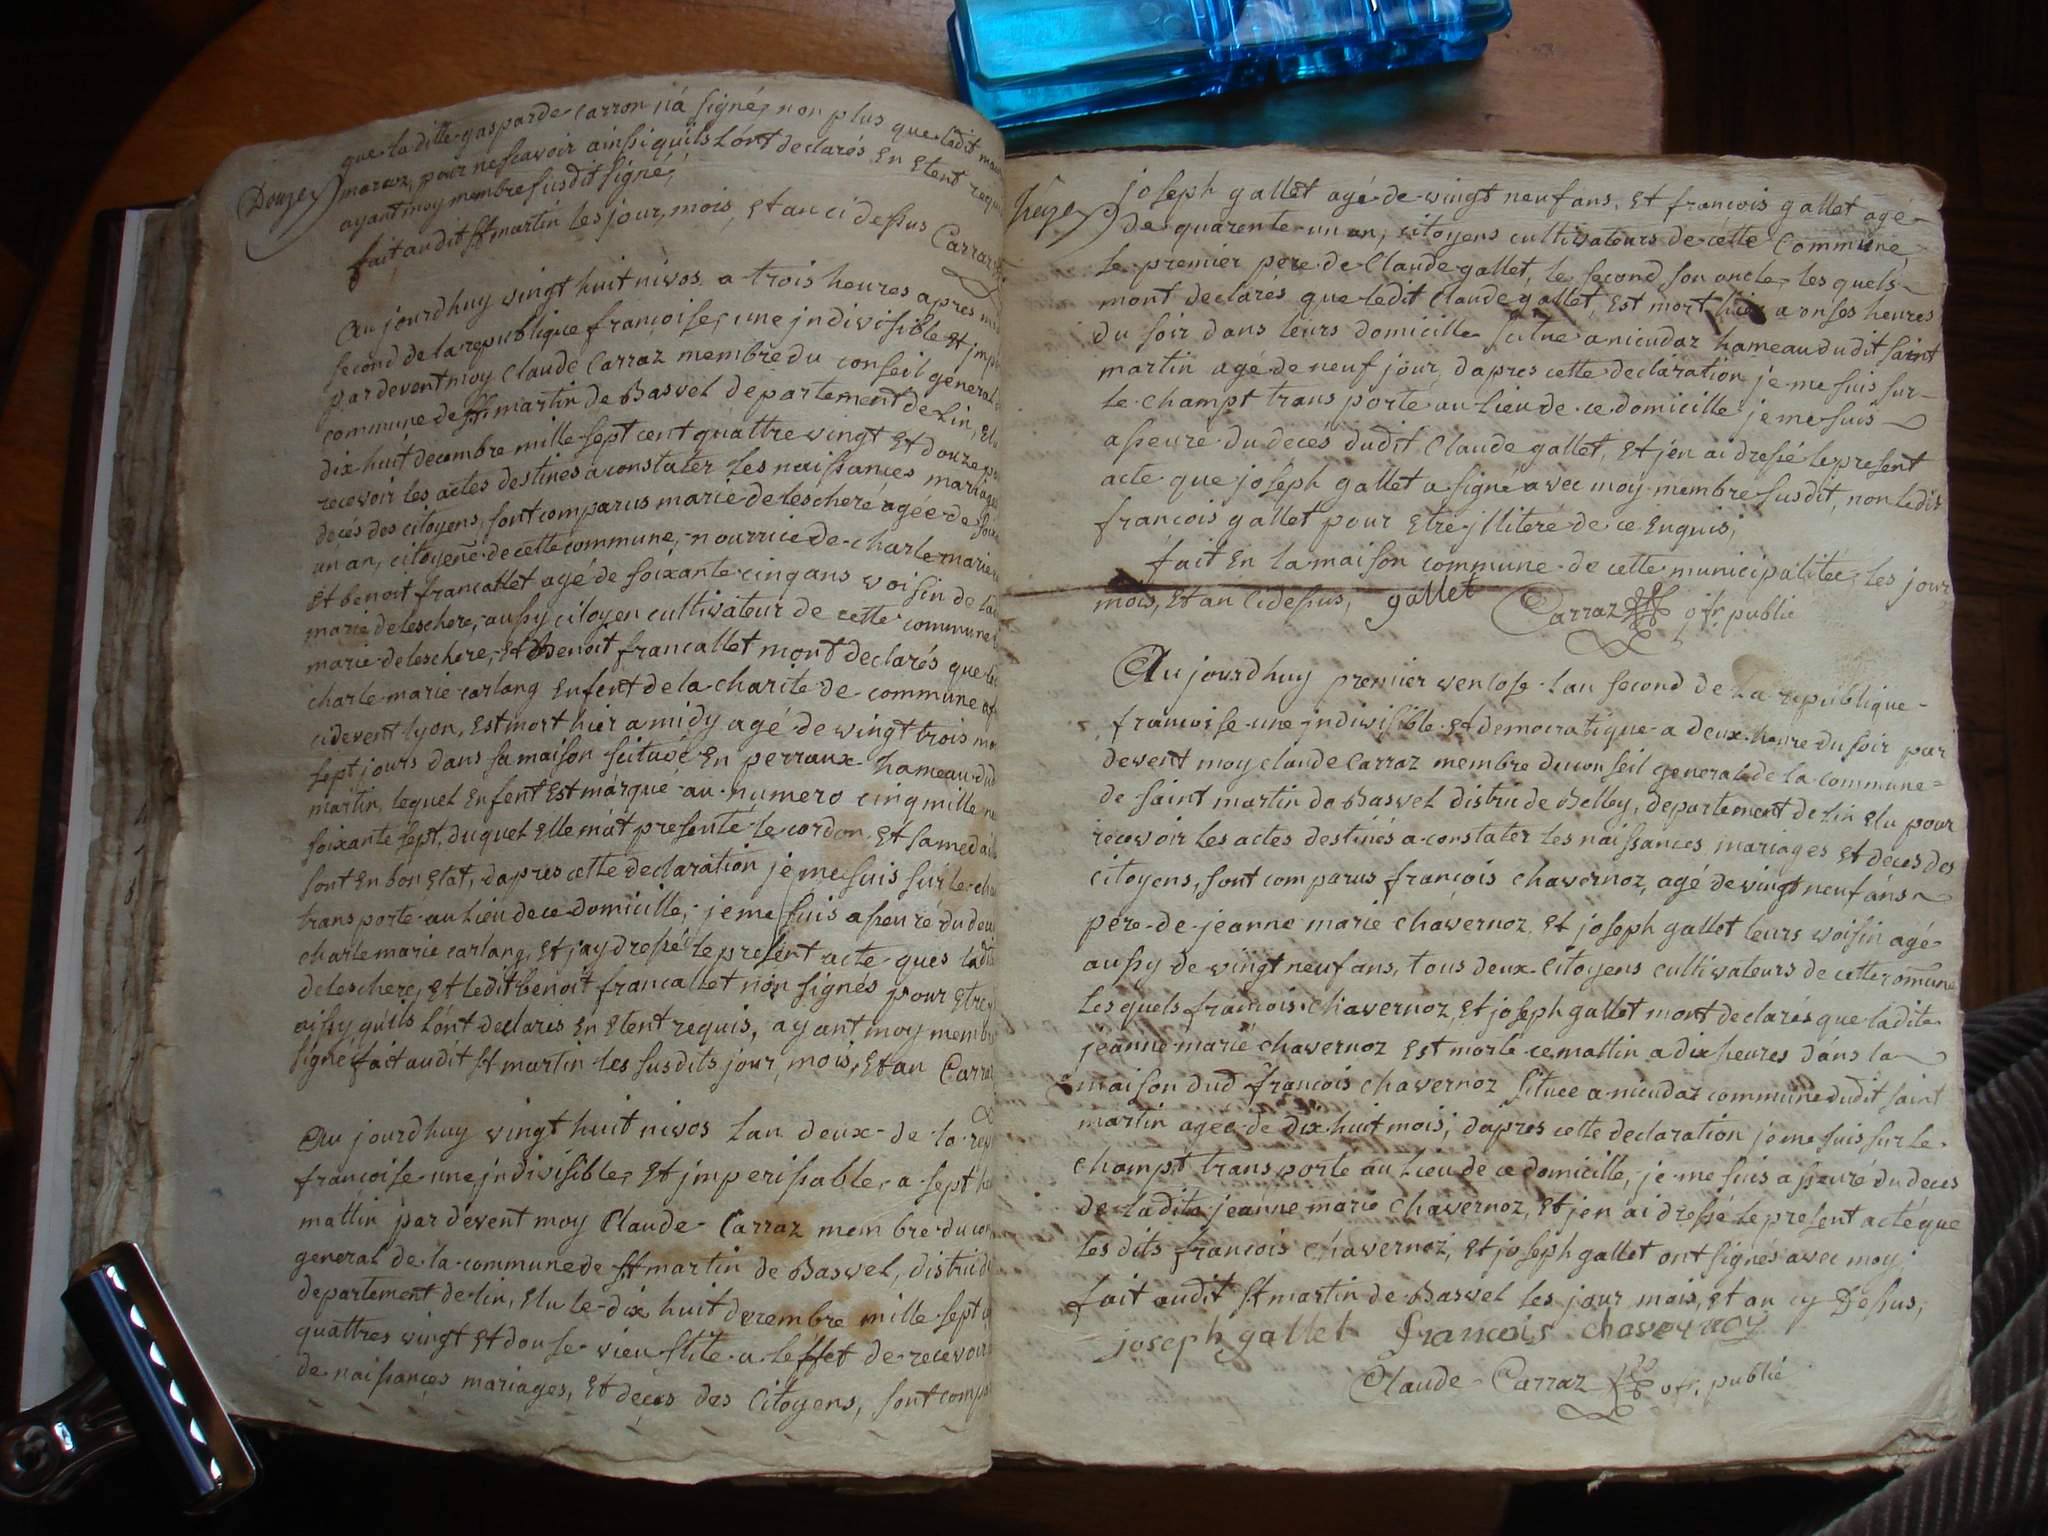 Douze
que laditte gasparde carron n'a signé, non plus que ledit
maroz, pour ne scavoir ainsi quils l'ont declarés En Etent requis
ayant moy membre susdit signé,
fait audit St martin les jour, mois, et an ci dessus Carraz
Aujourdhuy vingt huit nivos a trois heures apres midi
second de la republique francoise, une jndivisible Et jmp
pardevent moy Claude Carraz membre du conseil general
commune de St martin de Bavvel departement de Lin, Elu
dix huit decembre mille sept cent quattre vingt Et douze p
recevoir les actes destinés a constater les naissances mariages
decés des citoyens, sont comparus marie deleschere agée de soix
un an, citoyene de cette commune, nourrice de charle marie
Et benoit francallet agé de soixante cinq ans voisin de lad
marie deleschere, aussy citoyen cultivateur de cette commune
marie deleschere, Et Benoit francallet m'ont declarés que le
charle marie carlang Enfent de la charite de commune af
cidevent lyon, Est mort hier a midy agé de vingt trois mo
sept jours dans sa maison scituée En perraux hameau dud
martin, lequel Enfent Est marqué au numero cinq mille
soixante sept, duquel Elle m'at presenté le cordon Et sa medail
sont En bon Etat, dapres cette declaration je me suis sur le cha
transporté au lieu de ce domicille, je me suis asseuré du dec
charle marie carlang, Et j'ay dressé le present acte ques lad
deleschere, Et ledit benoit francallet non signés pour Etre
aissy quils l'ont declarés En Etent requis, ayant moy membre
signé fait audit St martin les susdits jour, mois, Et an Carra
Aujourdhuy vingt huit nivos lan deux de la rep
francoise une jndivisible, Et jmperissable, a sept he
mattin pardevent moy Claude Carraz membre du con
general de la commune de St martin de Bavvel, distri d
departement de lin, Elu le dix huit decembre mille sept c
quattres vingt Et douse vieu stile a l'effet de recevoir
de naissances mariages, Et decés des Citoyens, sont comp
treze
joseph gallet agé de vingt neuf ans, Et francois gallet agé
de quarente un an, citoyens cultivateurs de cétte Commune,
le premier pere de Claude gallet, le second son oncle, les quels
m'ont declarés que ledit Claude gallet, Est mort hier a onses heures
du soir dans leurs domicille scitue a nicudaz hameau dudit saint
martin agé de neuf jour, dapres cette declaration je me suis sur
le champt transporte au lieu de ce domicille je me suis
asseure du decés dudit Claude gallet, Et j'en ai dressé le present
acte que joseph gallet a signé avec moy membre susdit, non ledit
francois gallet pour Etre jlliteré de ce Enquis,
fait En la maison commune de cette municipalitée, les jour
mois, Et an Cidessus, gallet Carraz ofr. public
Aujourdhuy premier ventose lan second de la republique
francoise une jndivisible Et democratique a deux heure du soir par
devent moy claude Carraz membre du conseil general de la commune
de saint martin de Bavvel distri de Belley, departement de lin Elu pour
recevoir les actes destinés a constater les naissances mariages Et décés des
Citoyens, sont comparus françois chavernoz, agé de vingt neuf ans
pere de jeanne marie chavernoz, Et joseph gallet leurs voisin agé
aussy de vingt neuf ans, tous deux Citoyens cultivateurs de cette comune
les quels francois chavernoz, Et joseph gallet m'ont declarés que ladite
jeanne marie chavernoz Est morte ce mattin a dix heures dans la
maison dud francois chavernoz situee a nicudaz commune dudit saint
martin agée de dix huit mois, dapres cette declaration je me suis sur le
champt transporte au lieu de ce domicille, je me suis asseuré du deces
de ladite jeanne marie chavernoz, Et j'en ai dressé le present acte que
les dits francois chavernoz, Et joseph gallet ont signés avec moy
fait audit St martin de Bavvel les jour, mois, Et an cy Dessus,
joseph gallet francois chavernoz
Claude Carraz ofr. public